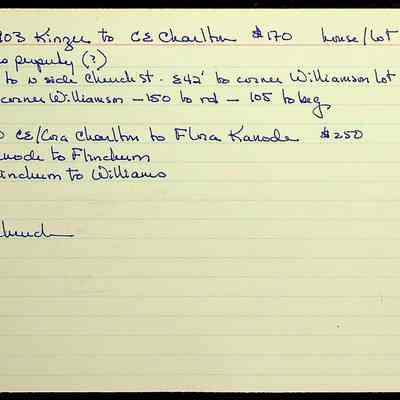 903 Kinzer to CE Charlton $170 house/lot
property (?)
to N side Church St. E42' to corner Williamson lot
corner Williamson - 150 to rd - 105 to beg.
CE/Cora Charlton to Flora Kanode $250
node to Flinchum
inchum to Williams